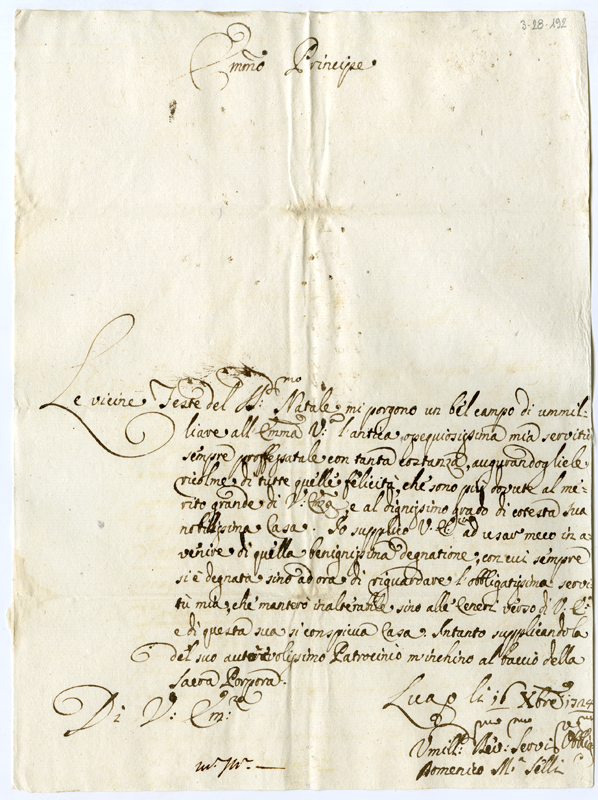 3-28-192
Emmo Principe
Le vicine Feste del SS.mo Natale mi porgono un bel campo di ummil-
liare all'Emma V.a l'antica opequiosissima mia servitù
sempre proffessatale con tanta costanza, augurandogliele
ricolme di tutte quelle felicità, che sono più dovute al me-
rito grande di V. Emza e al dignissimo grado di cotesta sua
nobilissima Casa. Io supplico V. Em.za ad usar meco in a-
venire di quella benignissima degnatione, con cui sempre
si è degnata sino ad ora di riguardare l'obbligatissima servi-
tù mia, che manterò inalterabile sino alle Ceneri verso di V. E.
e di questa sua sì conspicua Casa. Intanto supplicandola
del suo autorevolissimo Patrocinio m'inchino al baccio della
Sacra Porpora.
Lugo li 16 Xbre 1724
Di V. Em.za
Umill.mo Dev.mo Servi.re Obblig.mo
Domenico M.a Selli